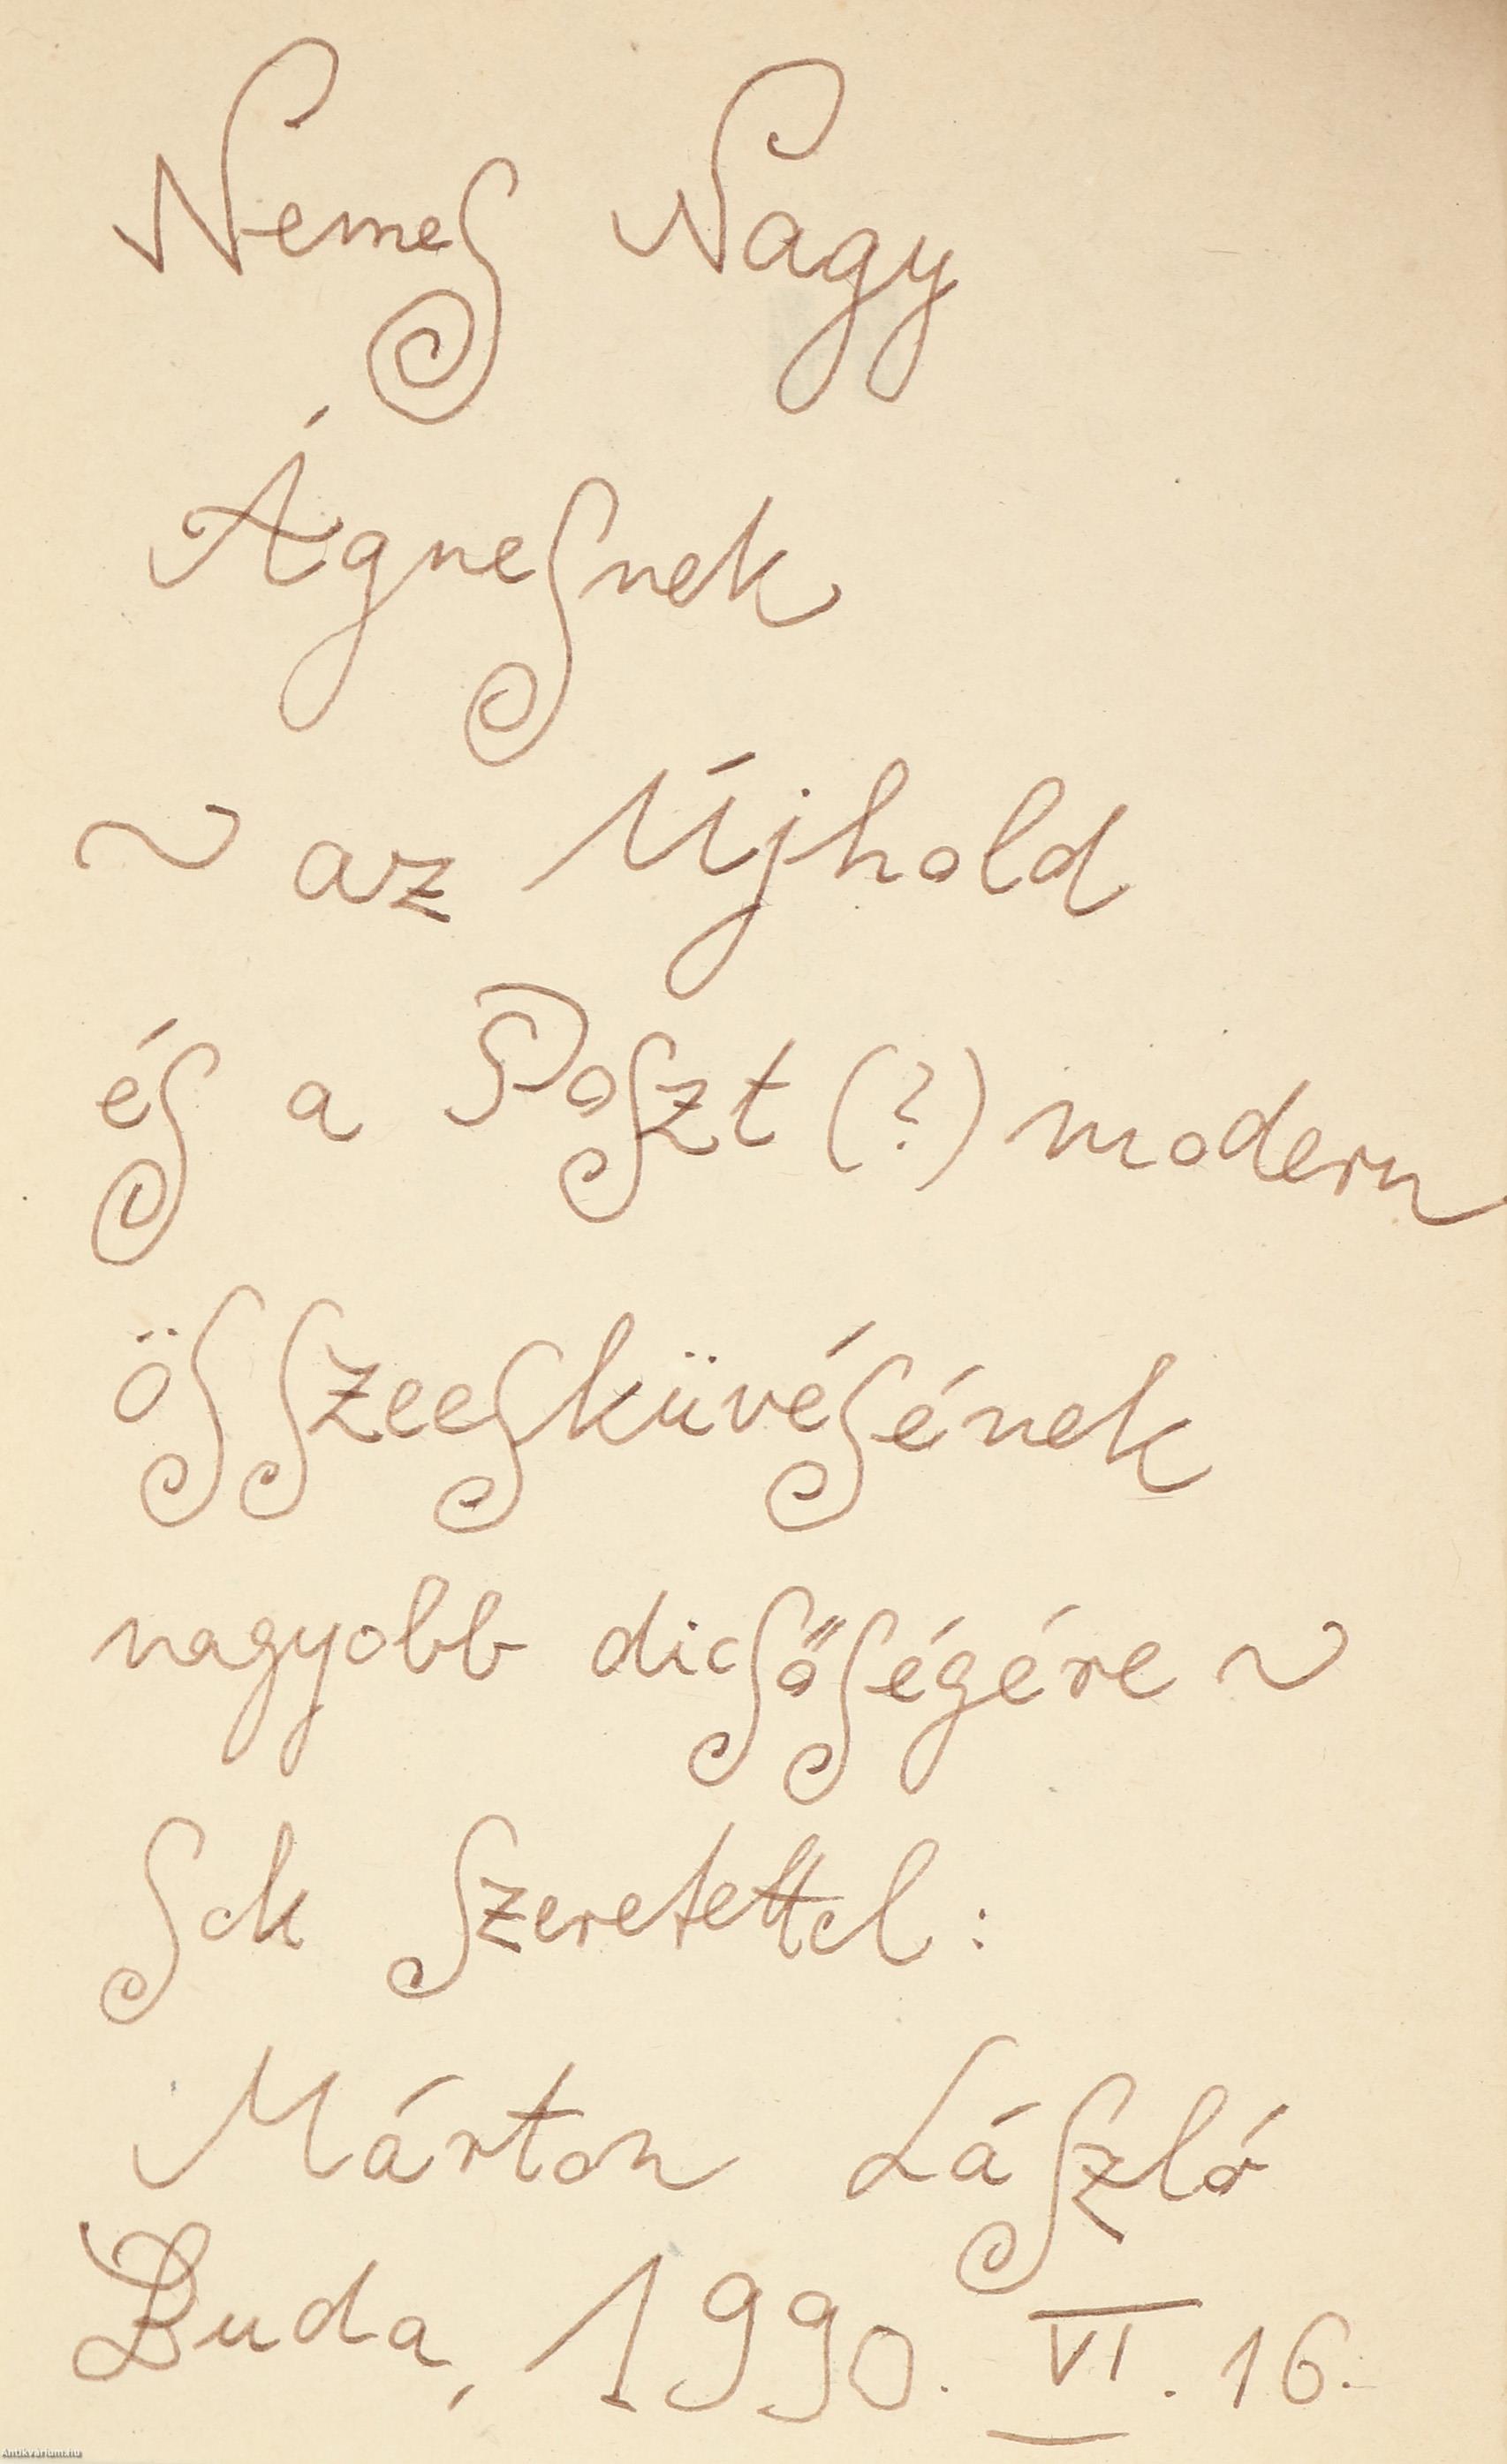 Nemes Nagy
Ágnesnek
~ az Újhold
és a Poszt(?)modern
összeesküvésének
nagyobb dicsőségére ~
Sok szeretettel:
Márton László
Buda, 1990. VI. 16.
Antikvárium.hu